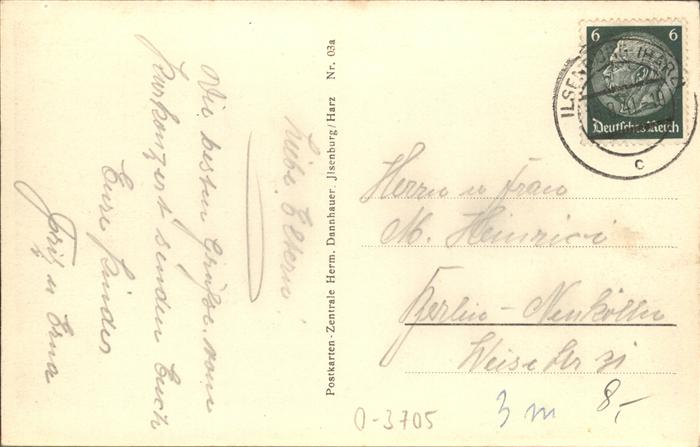 Liebe Eltern!
Die besten Grüße vom
Kurkonzert senden Euch
Eure Kinder
Fritz u Erna
Postkarten-Zentrale Herm. Dannhauer, Jlsenburg/Harz Nr. 03a
6 6
Deutsches Reich
ILSENBURG (HARZ)
c
Herrn u Frau
M. Heinrici
Berlin-Neukölln
Weise Str 31
0-3705
3 m
8,-